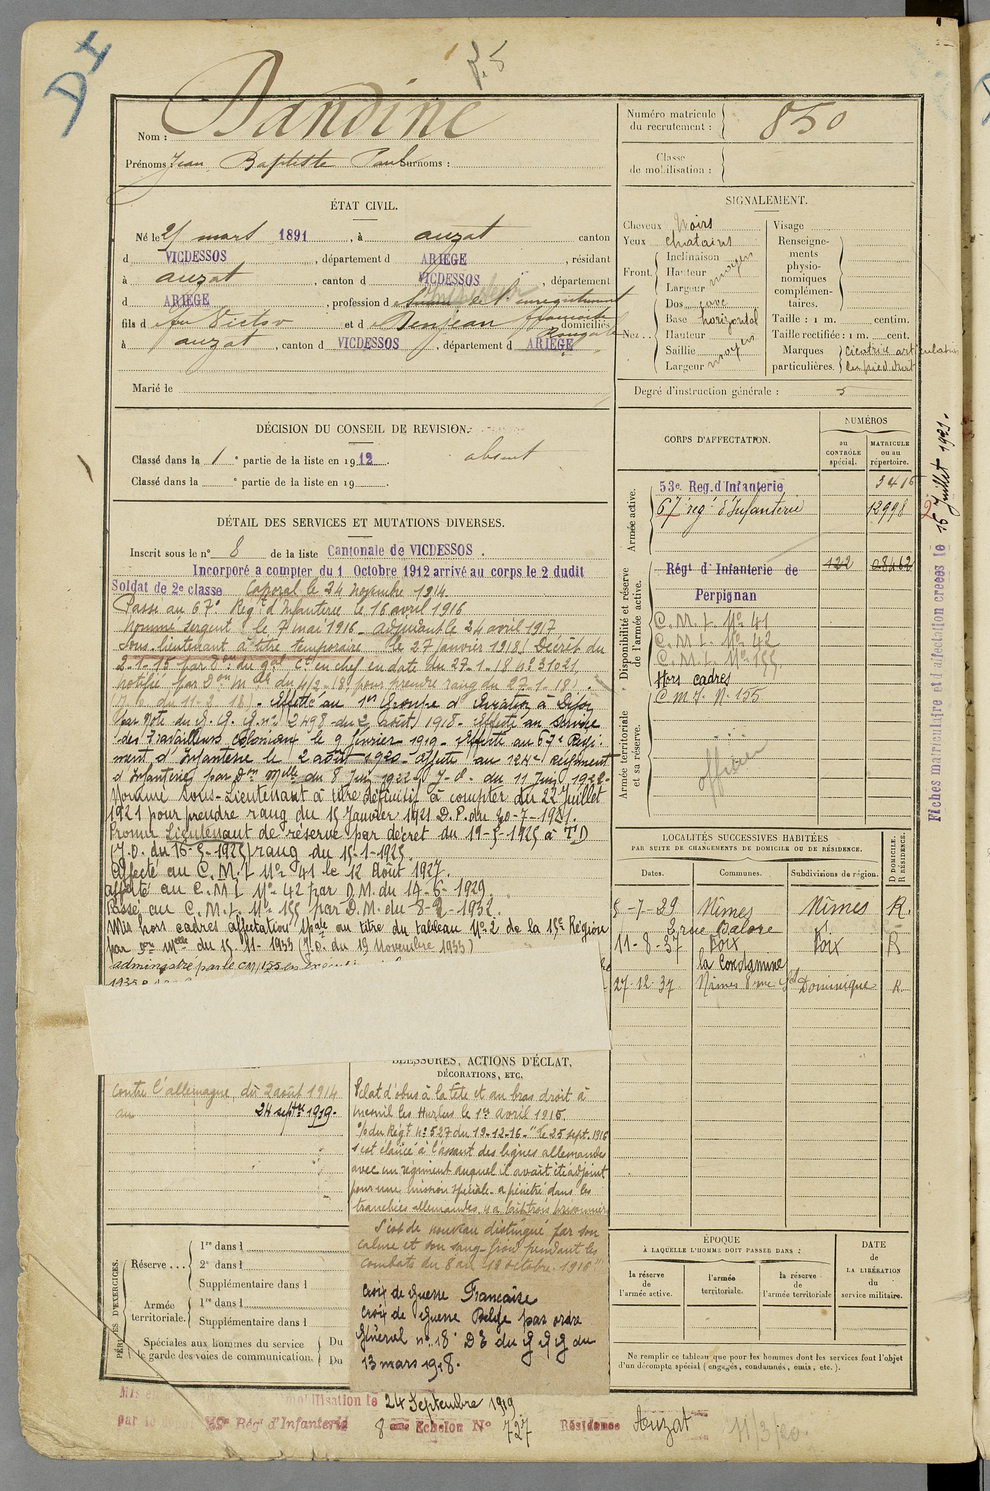 DI
P. 5
Nom : Dandine
Prénoms Jean Baptiste Paul Surnoms :
Numéro matricule du recrutement : 850
Classe de mobilisation :
ÉTAT CIVIL.
Né le 21 mars 1891, à auzat canton
d VICDESSOS, département d ARIEGE, résidant
à auzat, canton d VICDESSOS, département
d ARIEGE, profession d
fils d feu Victor et d Denjean françoise domiciliés
à auzat, canton d VICDESSOS, département d ARIEGE
Marié le
SIGNALEMENT.
Cheveux Noirs
Yeux chatains
Front. Inclinaison
Hauteur moyen
Largeur
Nez. Dos cave
Base horizontal
Hauteur
Saillie moyen
Largeur
Visage
Renseignements physionomiques complémentaires.
Taille : 1 m. centim.
Taille rectifiée : 1 m. cent.
Marques particulières. cicatrice articulation
Degré d'instruction générale : 5
DÉCISION DU CONSEIL DE REVISION.
Classé dans la 1e partie de la liste en 1912. absent
Classé dans la e partie de la liste en 19
DÉTAIL DES SERVICES ET MUTATIONS DIVERSES.
Inscrit sous le n° 8 de la liste Cantonale de VICDESSOS.
Incorporé a compter du 1 Octobre 1912 arrivé au corps le 2 dudit
Soldat de 2e classe Caporal le 24 novembre 1914.
Passé au 67e Régt d'Infanterie le 16 avril 1916
Nommé sergent le 7 mai 1916. adjudant le 24 avril 1917
Sous-lieutenant à titre temporaire le 27 janvier 1918 (Décret du
2-1-15 par Don du Gal Ct en chef en date du 27-1-18 no 21021
notifié par Don Mlle du 4/2-18) pour prendre rang du 27-1-18).
(J.O. du 11-2-18). Affecté au 1er Groupe d'Aviation à Dijon
par Note du G.Q.G. no 2498 du 2 août 1918. Affecté au service
des Travailleurs coloniaux le 9 février 1919. Affecté au 67e Régi
ment d'Infanterie le 2 août 1920. Affecté au 124e Régiment
d'Infanterie, par Dn Melle du 8 Juin 1922. J.O. du 11 Juin 1922.
Nommé sous-Lieutenant à titre définitif à compter du 22 Juillet
1921 pour prendre rang du 15 Janvier 1921. D.P. du 20-7-1921.
Promu Lieutenant de réserve par décret du 19-5-1925 à T.D
(J.O. du 16-5-1925) rang du 15-1-1925.
Affecté au C.M.I. No 41 le 12 Août 1927.
affecté au C.M.I No 42 par D.M. du 14-6-1929.
Passé au C.M.I. No 155 par D.M. du 8-2-1932.
Mis hors cadres affectation spale au titre du tableau No 2 de la 15e Région
par Don Melle du 15-11-1933 (J.O. du 19 Novembre 1933)
administré par le CMI 155 en
CORPS D'AFFECTATION.
NUMÉROS
au CONTRÔLE spécial.
MATRICULE ou au répertoire.
Armée active.
53e Reg. d'Infanterie 3416
67e rég.t d'Infanterie 12998
Disponibilité et réserve de l'armée active.
Régt d'Infanterie de Perpignan 122 08462
C.M.I. No 41
C.M.I. No 42
C.M.I. No 155
Hors cadres
C M I. N. 155
Armée territoriale et sa réserve.
officier
Fiches matriculaire et d'affectation créées le 16 Juillet 1921.
LOCALITÉS SUCCESSIVES HABITÉES
PAR SUITE DE CHANGEMENTS DE DOMICILE OU DE RÉSIDENCE.
Dates. Communes. Subdivisions de région. D DOMICILE. R RÉSIDENCE.
5-7-29 Nîmes Nîmes R.
3, rue Balore
11-8-37 Foix Foix R
la Condamine
27-12-37 Nîmes 8 rue St Dominique R.
BLESSURES, ACTIONS D'ÉCLAT,
DÉCORATIONS, ETC.
contre l'allemagne du 2 août 1914
au 24 septre 1919.
Eclat d'obus à la tête et au bras droit à
mesnil les Hurlus le 1er avril 1915
O/ du Régt no 527 du 19-12-16. "Le 25 sept. 1916
s'est élancé à l'assaut des lignes allemandes
avec un régiment auquel il avait été adjoint
pour une mission spéciale. a pénétré dans les
tranchées allemandes, y a fait trois prisonniers
S'est de nouveau distingué par son
calme et son sang-froid pendant les
combats du 8 au 12 octobre 1916"
Croix de guerre Française
croix de Guerre Belge par ordre
Général no 18 D E du G Q G du
13 mars 1918.
PÉRIODES D'EXERCICES.
Réserve... 1re dans l
2e dans l
Supplémentaire dans l
Armée territoriale. 1re dans l
Supplémentaire dans l
Spéciales aux hommes du service Du
de garde des voies de communication. Du
ÉPOQUE
À LAQUELLE L'HOMME DOIT PASSER DANS :
la réserve de l'armée active.
l'armée territoriale.
la réserve de l'armée territoriale
DATE DE LA LIBÉRATION du service militaire.
Ne remplir ce tableau que pour les hommes dont les services font l'objet
d'un décompte spécial (engagés, condamnés, omis, etc.).
Mis en mobilisation le 24 Septembre 1919
par le Régt d'Infanterie 8 ème Echelon No 727 Résidence Auzat 11/3/20